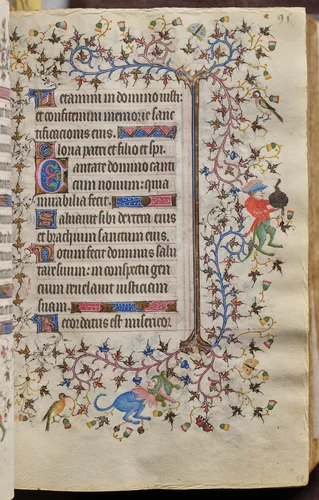 91
Letamini in domino iusti:
et confitemini memorie sanc
tificacionis eius.
Gloria patri et filio et spi.
Cantate domino canti
cum nouum: quia
mirabilia fecit.
Saluauit sibi dextera eius
et brachium sanctum eius.
Notum fecit dominus salu
tare suum: in conspectu gen
cium reuelauit iusticiam
suam.
Recordatus est misericor